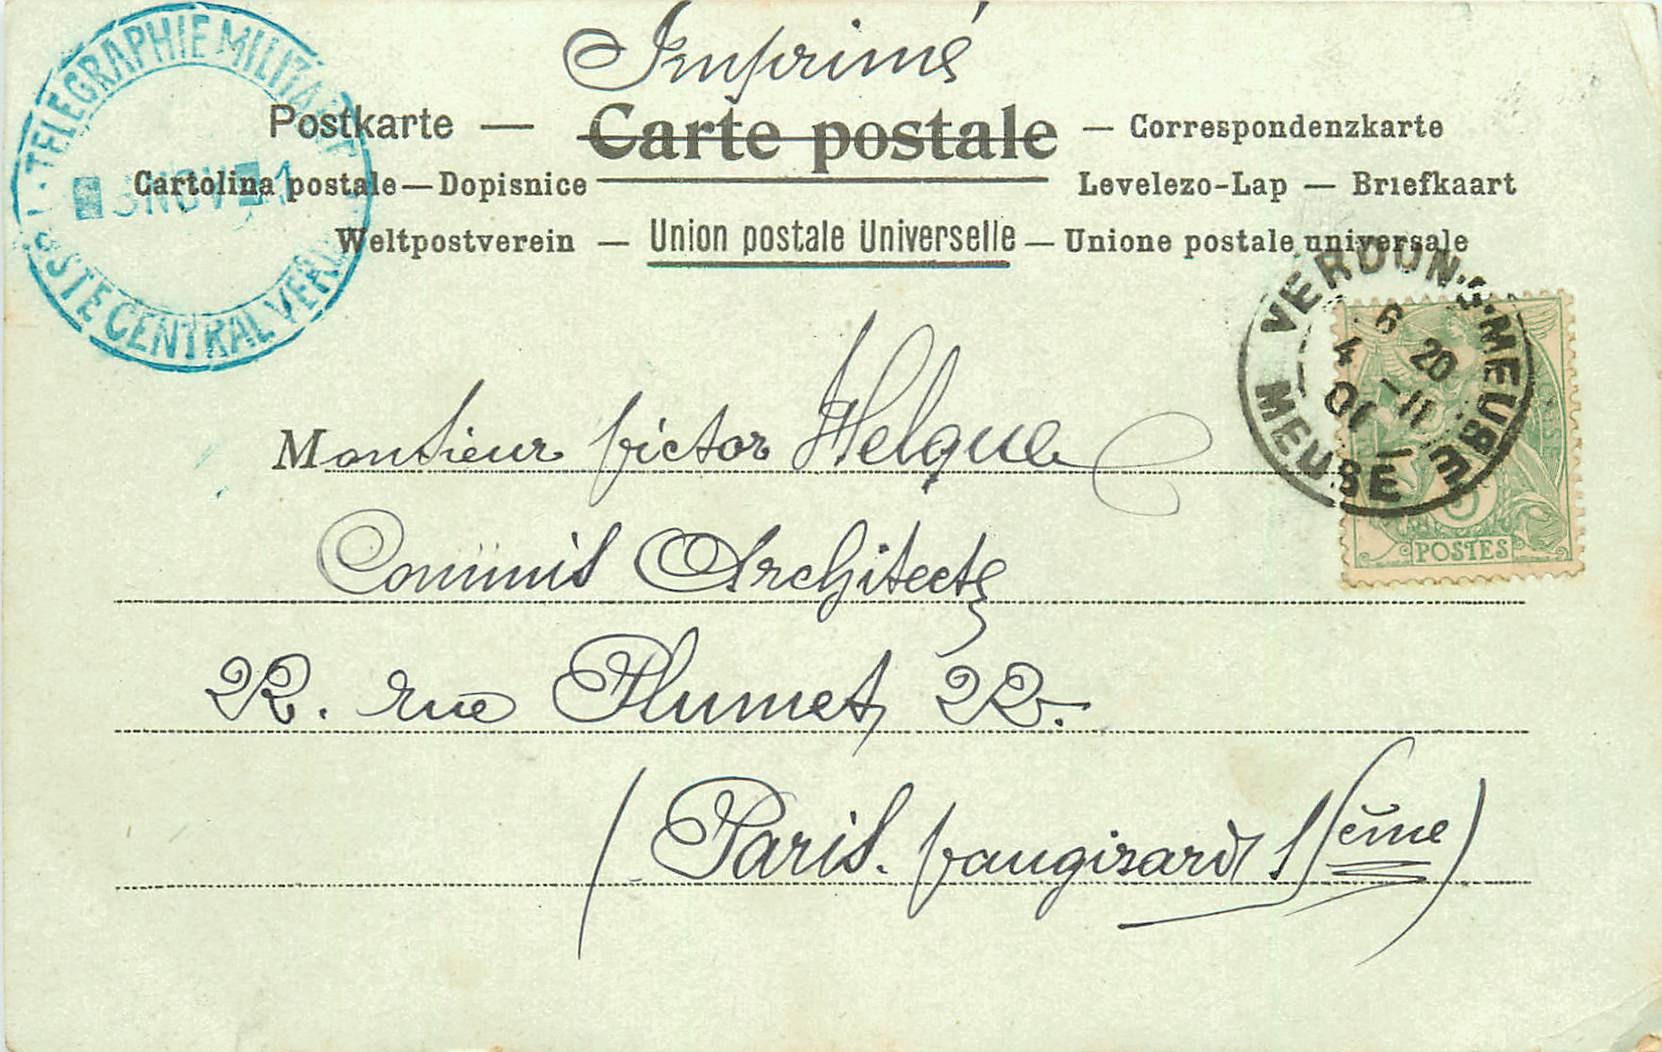 Imprimé
TELEGRAPHIE MILITAIRE
Postkarte — Carte postale — Correspondenzkarte
Cartolina postale — Dopisnice
Levelezo-Lap — Briefkaart
3 NOV 1
Weltpostverein — Union postale Universelle — Unione postale universale
POSTE CENTRAL VERDUN
VERDUN-S-MEUSE
6 20
4 -11
01
MEUSE
5
POSTES
Monsieur Victor Helque
Commis Architecte
22. rue Plumet 22.
(Paris. Vaugirard 15ème)